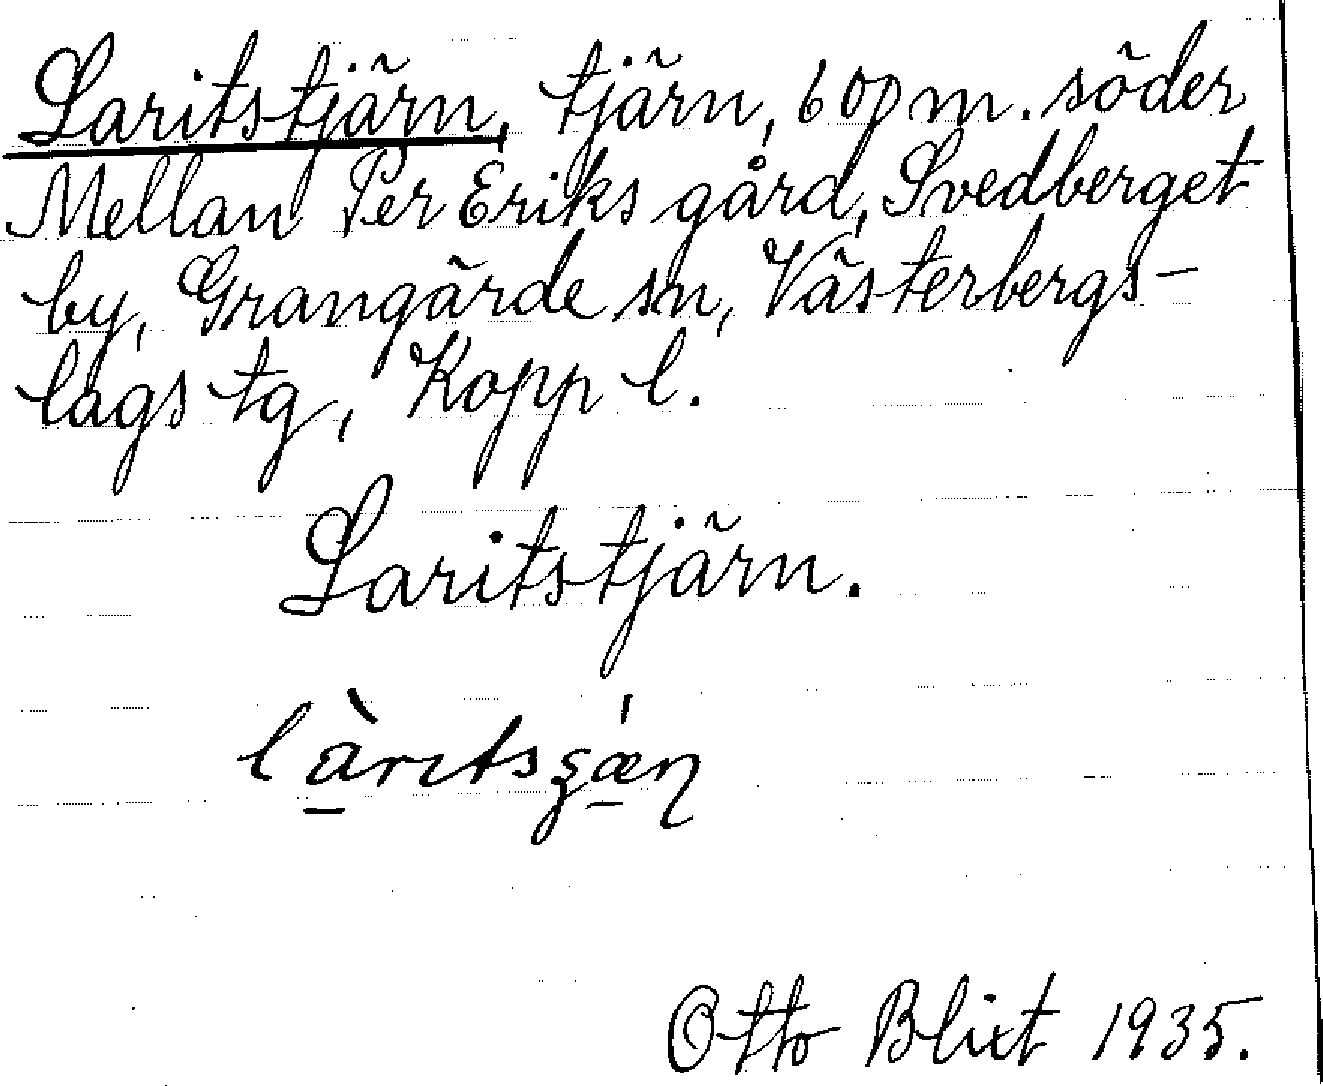 Laritstjärn, tjärn, 600 m. söder
Mellan Per Eriks gård, Svedberget
by, Grangärde sn, Västerbergs-
lags tg, Kopp l.
Laritstjärn.
làritsʂǽɳ
Otto Blixt 1935.